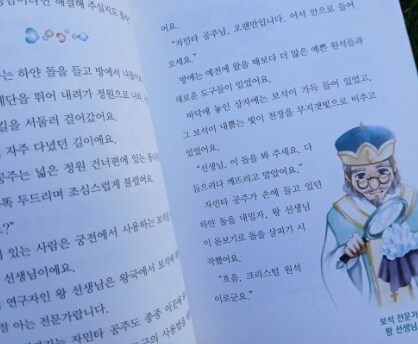 해결해 주실지도 몰라
는 하얀 돌을 들고 방에서 나
계단을 뛰어 내려가 정원으로
길을 서둘러 걸어갔어요.
자주 다녔던 길이에요.
공주는 넓은 정원 건너편에 있는
똑 두드리며 조심스럽게 불렀어요.
요?”
에 있는 사람은 궁전에서 사용하는
선생님이에요.
연구자인 왕 선생님은 왕국에서
잘 아는 전문가랍니다.
자민타 공주도 종종
어요.
“자민타 공주님, 오랜만입니다. 어서 안으로 들어
오세요.”
방에는 예전에 왔을 때보다 더 많은 예쁜 원석들과
새로운 도구들이 있었어요.
바닥에 놓인 상자에는 보석이 가득 들어 있었고,
그 보석이 내뿜는 빛이 천장을 무지갯빛으로 비추고
있었어요.
“선생님, 이 돌을 봐 주세요. 다
듬으려다 깨뜨리고 말았어요.”
자민타 공주가 손에 들고 있던
하얀 돌을 내밀자, 왕 선생님
이 돋보기로 돌을 살피기 시
작했어요.
“흐음, 크리스털 원석
이로군요.”
보석 전문가
왕 선생님